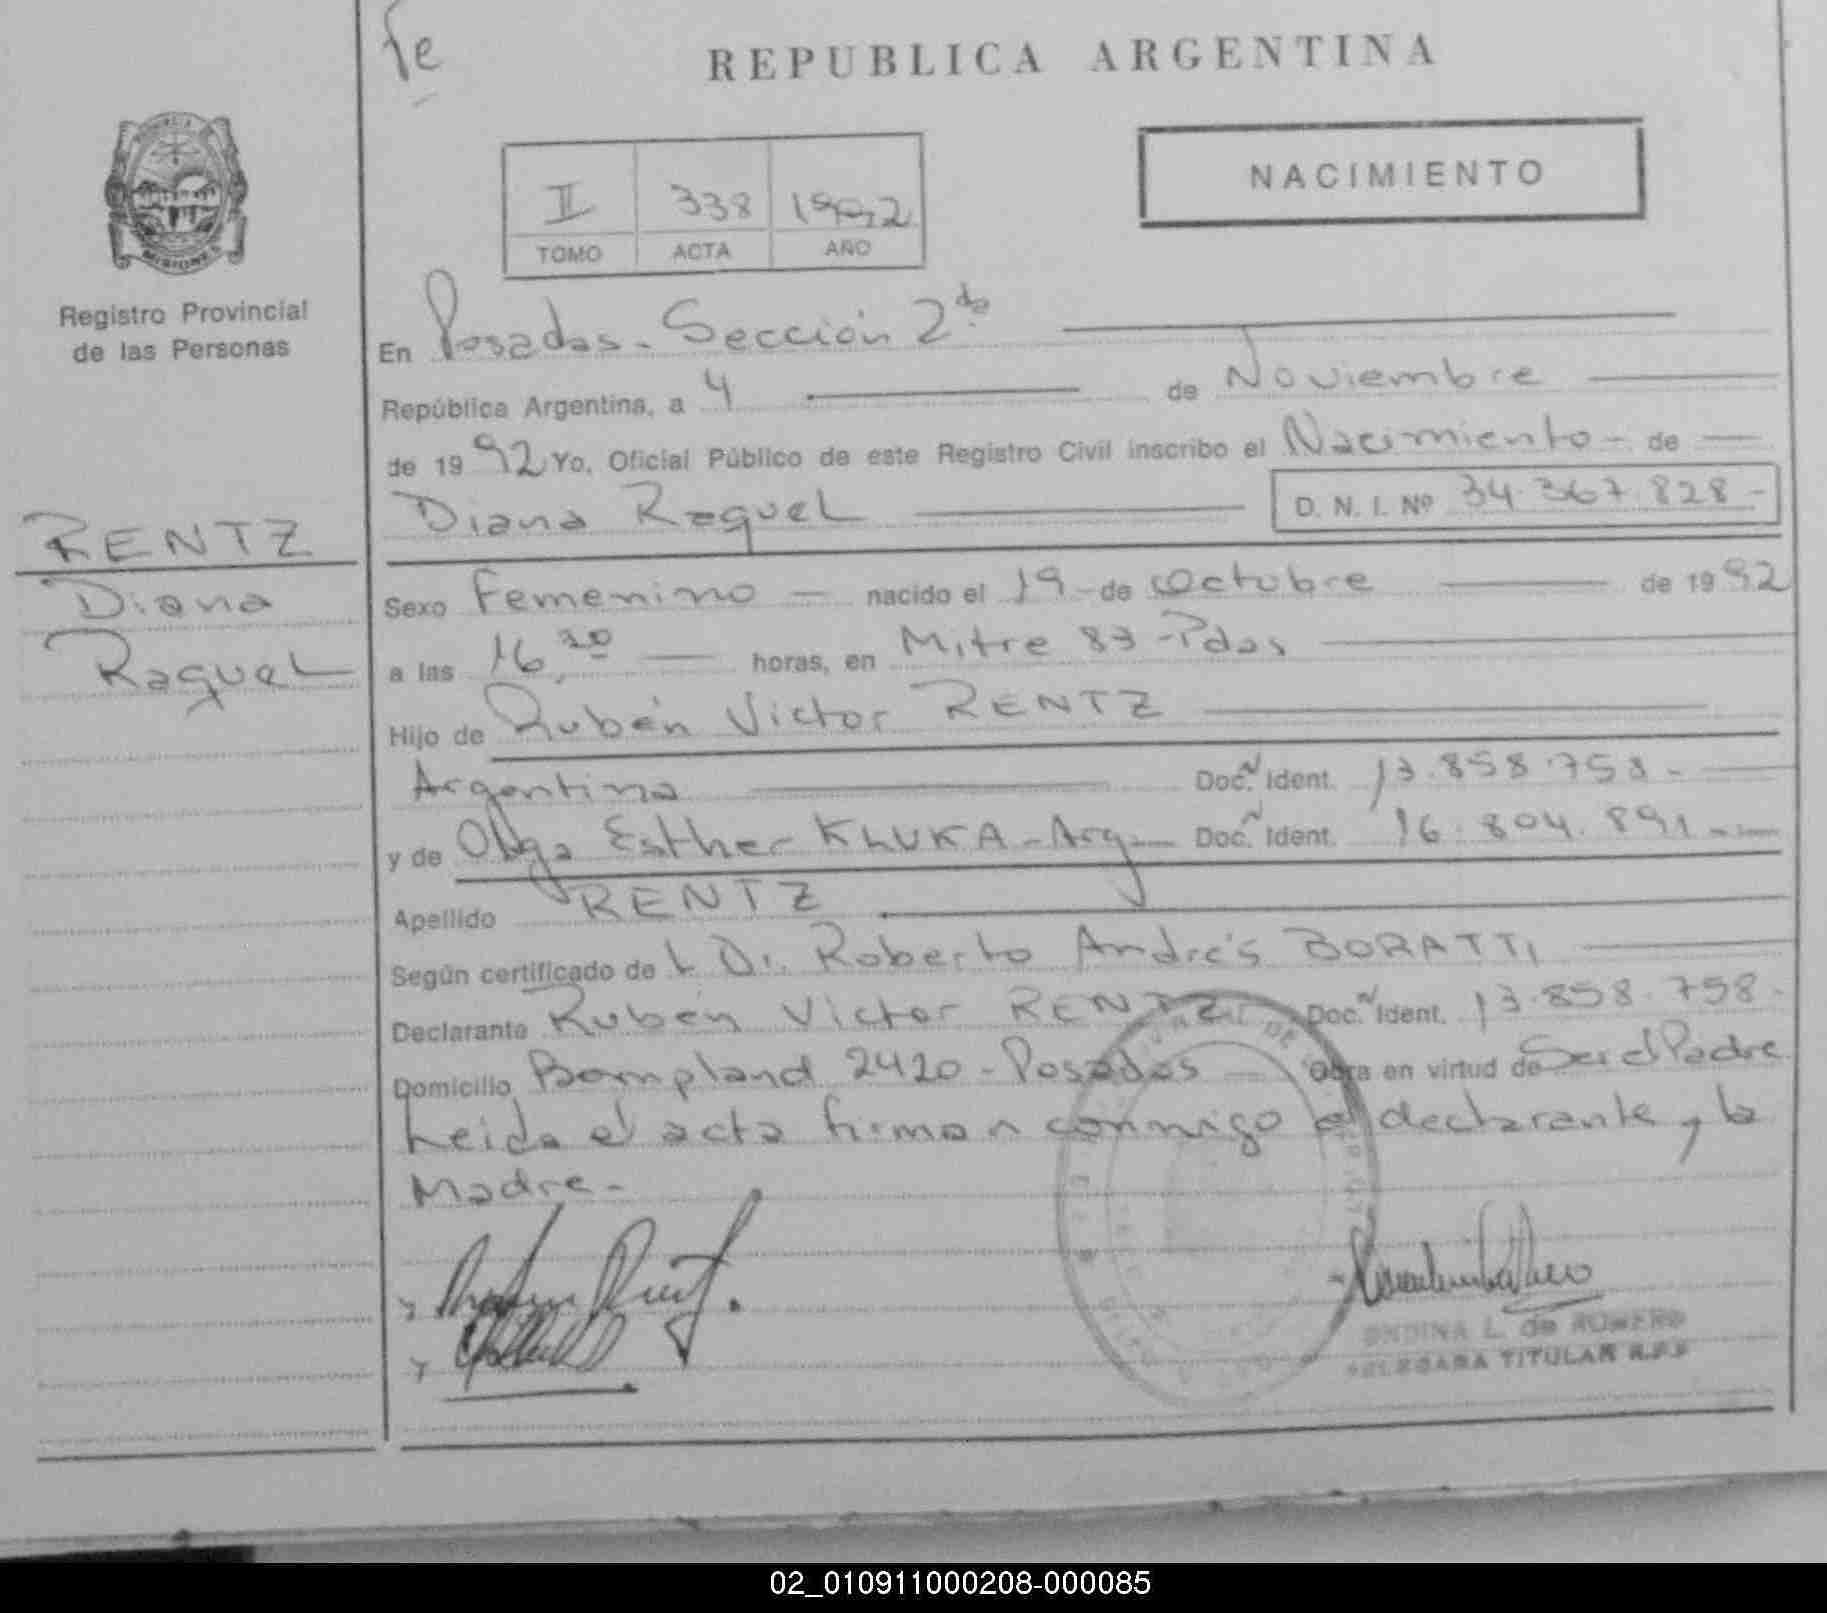 Fe
REPUBLICA ARGENTINA
NACIMIENTO
II 338 1992
TOMO ACTA AÑO
MISIONES
Registro Provincial
de las Personas
En Posadas - Sección 2da
República Argentina, a 4 de Noviembre
de 1992 Yo, Oficial Público de este Registro Civil inscribo el Nacimiento - de
Diana Raquel D. N. I. Nº 34.367.828 -
RENTZ
Diana
Raquel
Sexo Femenino - nacido el 19 - de Octubre de 1992
a las 16, horas, en Mitre 83 - Pdas
Hijo de Rubén Victor RENTZ
Argentino Doc. Ident. 13.858.758 -
y de Olga Esther KLUKA - Arg. Doc. Ident. 16.804.891 -
Apellido RENTZ
Según certificado de L Dr. Roberto Andrés BORATTI
Declarante Rubén Victor RENTZ Doc. Ident. 13.858.758 -
Domicilio Bompland 2420 - Posadas Obra en virtud de Ser el Padre
Leida el acta firman conmigo el declarante y la
Madre -
ONDINA L. de ROMERO
DELEGADA TITULAR R.P.P
02_010911000208-000085